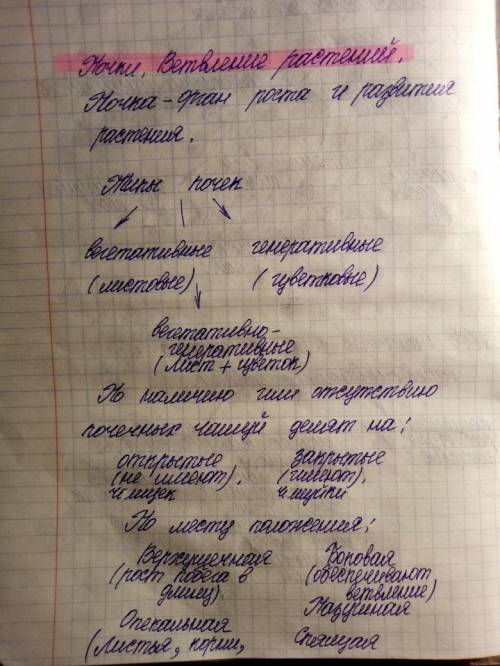 Почки. Ветвление растений.
Почка - орган роста и развития
растения.
Типы почек
вегетативные генеративные
(листовые) (цветковые)
вегетативно-
генеративные
(лист + цветок)
По наличию или отсутствию
почечных чешуй делят на:
открытые закрытые
(не имеют). (имеют).
чешуек чешуйки
По месту положения:
Верхушечная Боковая
(рост побега в (обеспечивают
длину). ветвление)
Пазушная
Спящая
(листья, корни,